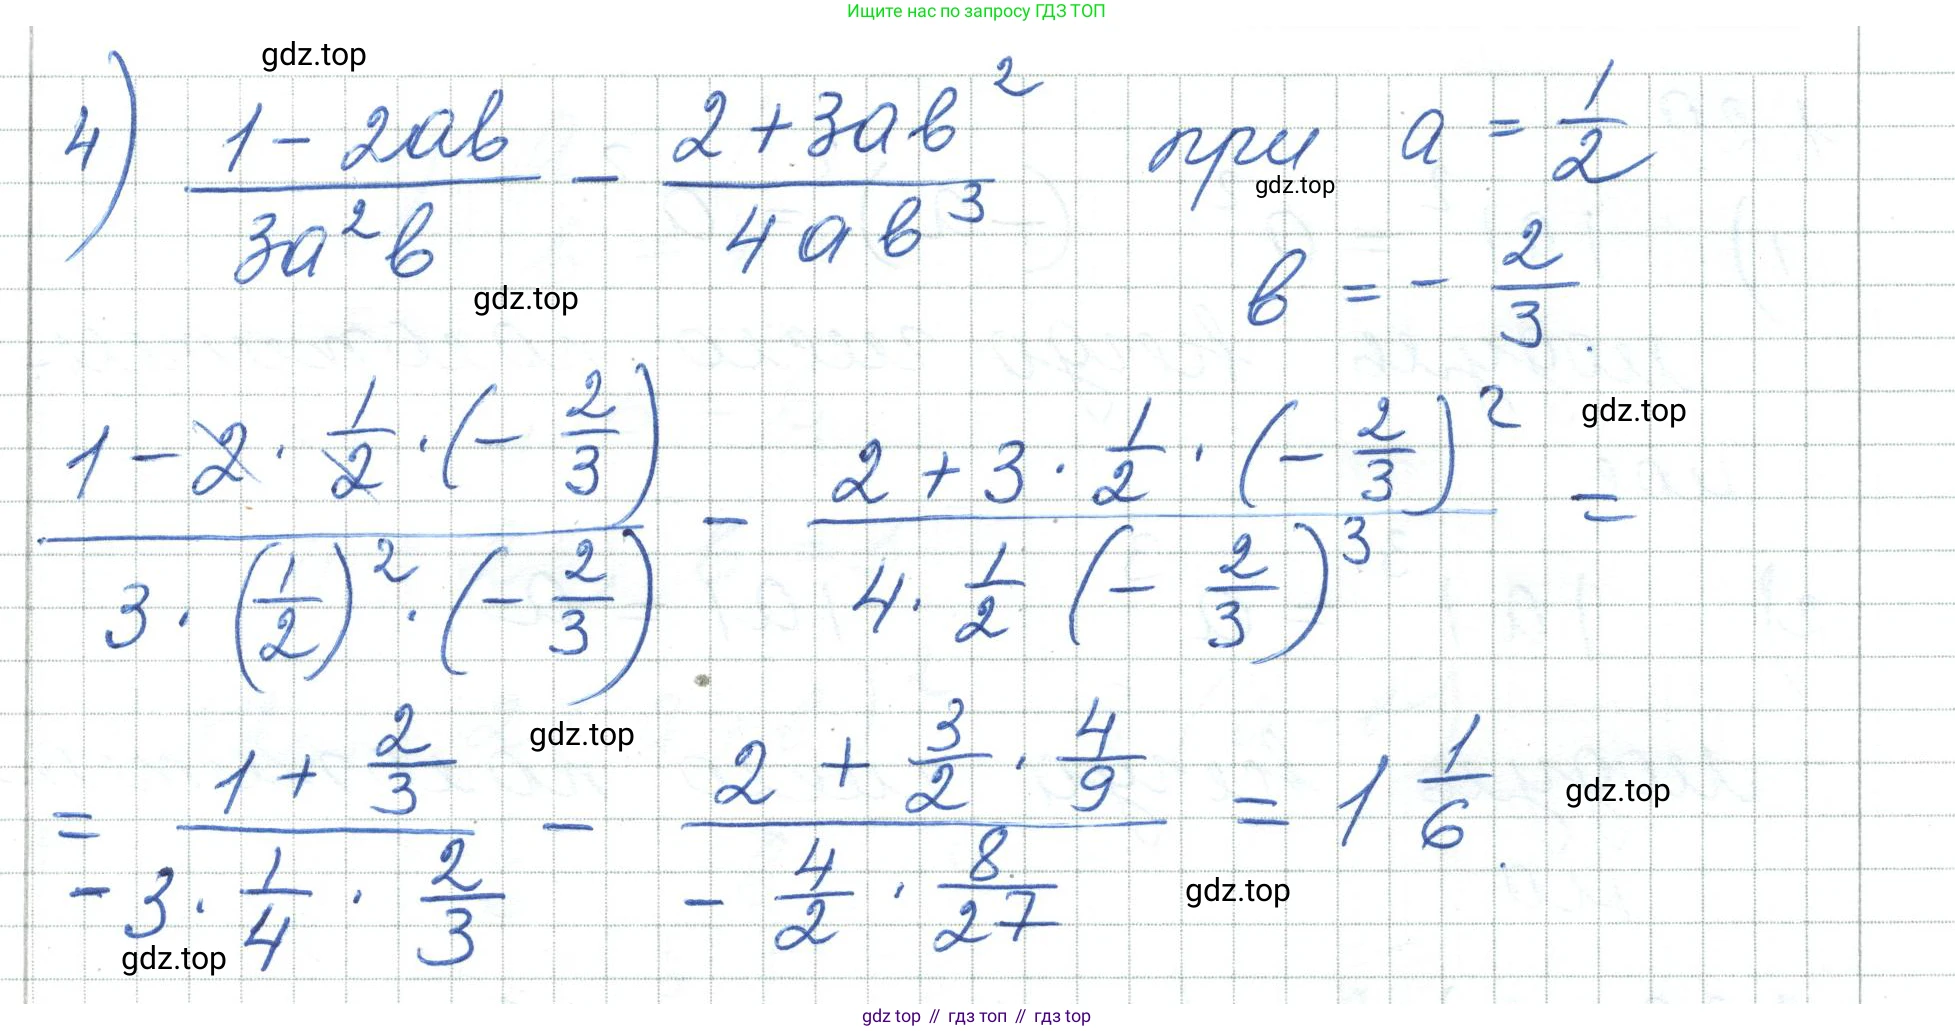 Ищите нас по запросу ГДЗ ТОП
gdz.top
4) (1 - 2ab)/(3a²b) - (2 + 3ab²)/(4ab³) при a = 1/2
gdz.top
b = - 2/3.
gdz.top
(1 - 2 · 1/2 · (- 2/3))/(3 · (1/2)² · (- 2/3)) - (2 + 3 · 1/2 · (- 2/3)²)/(4 · 1/2 (- 2/3)³) =
gdz.top
gdz.top
= (1 + 2/3)/(- 3 · 1/4 · 2/3) - (2 + 3/2 · 4/9)/(- 4/2 · 8/27) = 1 1/6.
gdz.top
gdz.top
gdz.top
gdz.top // гдз топ // гдз top